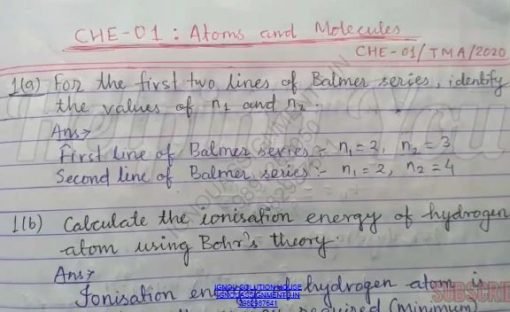 CHE-01 : Atoms and Molecules
CHE-01/TMA/2020
1(a) For the first two lines of Balmer series, identify
the values of n₁ and n₂.
Ans>
First line of Balmer series :- n₁=2, n₂=3
Second line of Balmer series :- n₁=2, n₂=4
1(b) Calculate the ionisation energy of hydrogen
atom using Bohr's theory.
Ans>
Ionisation energy of hydrogen atom is
required (minimum)
SUBSCRIBE